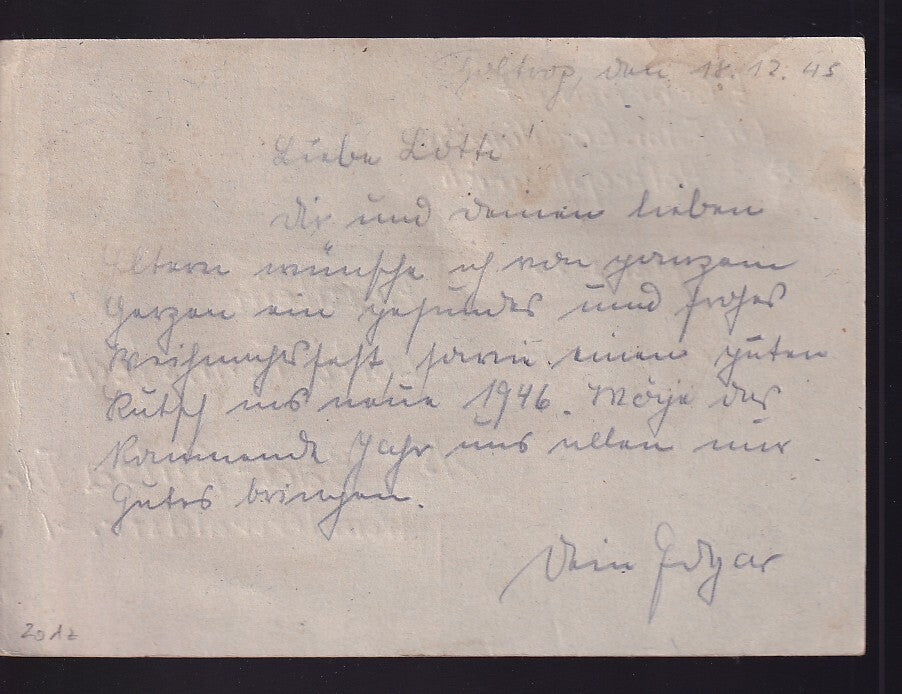 Holtrop, den 18.12.45
Liebe Lotti!
Dir und deinen lieben
Eltern wünsche ich von ganzem
Herzen ein gesundes und frohes
Weihnachsfest, sowie einen guten
Rutsch ins neue 1946. Möge das
kommende Jahr uns allen nur
Gutes bringen.
Dein Edgar